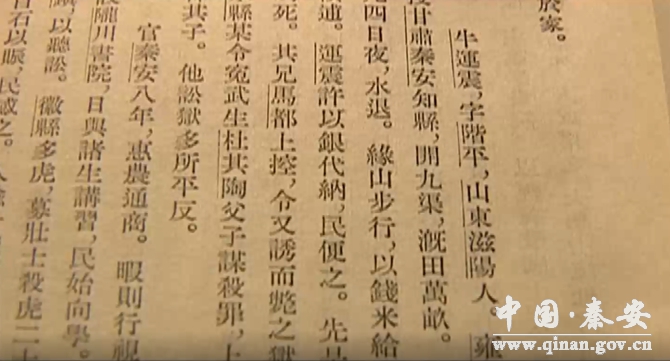 於家。
牛運震，字階平，山東滋陽人。雍
甘肅秦安知縣，開九渠，溉田萬畝。
四日夜，水退。緣山步行，以錢米給
逋。運震許以銀代納，民便之。先是
死。其兄馬都上控，令又誘而斃之獄
縣某令冤武生杜其陶父子謀殺罪，上
其子。他訟獄多所平反。
官秦安八年，惠農通商。暇則行視
隴川書院，日與諸生講習，民始向學。
以聽訟。徽縣多虎，募壯士殺虎二十
石以賑，民感之。
中国·秦安
www.qinan.gov.cn